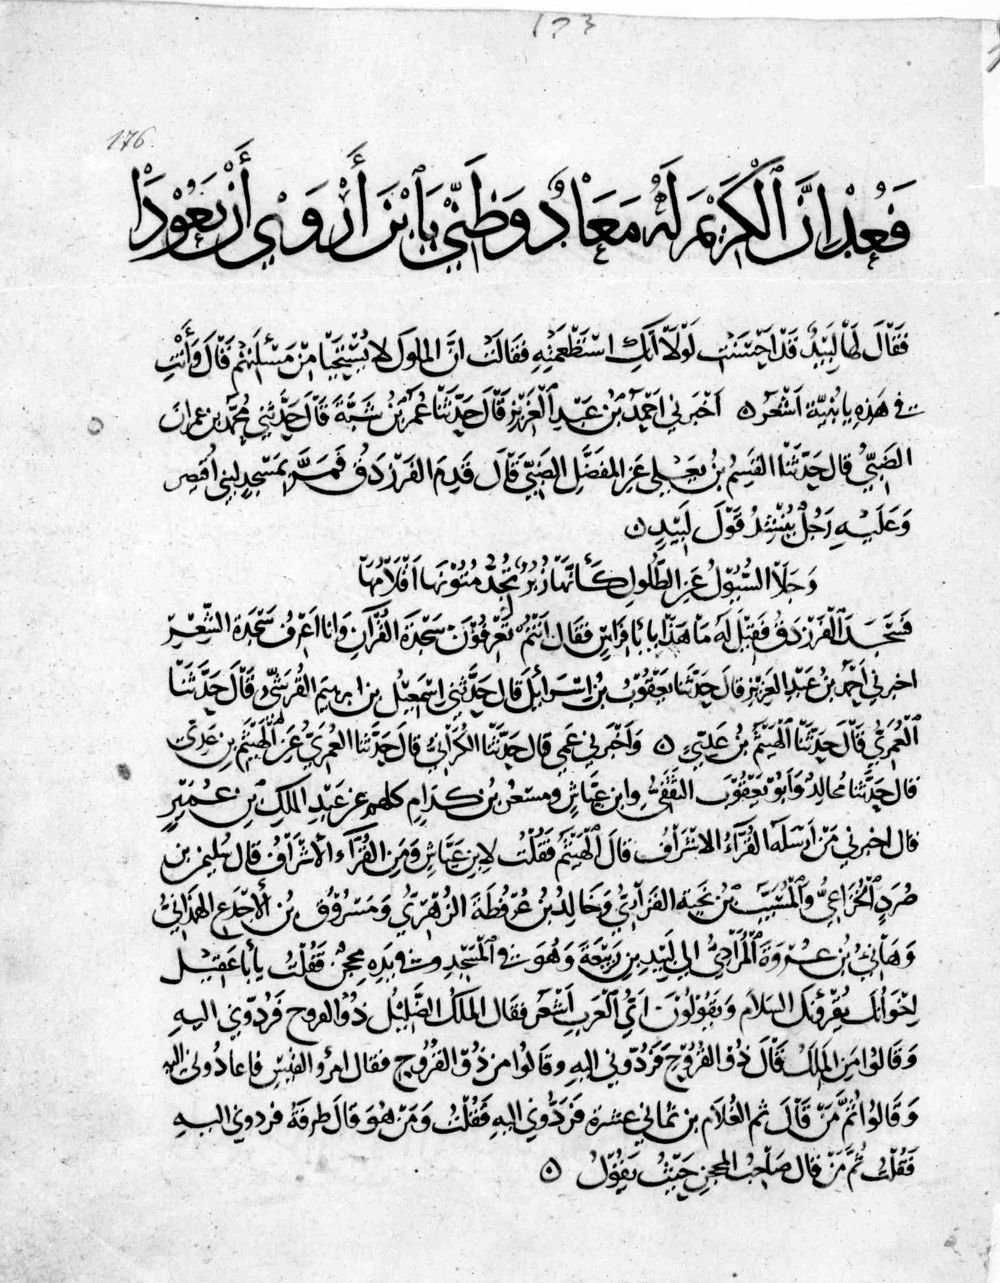 ١٢٣
176
فَعُدْ اِنَّ ٱلْكَرِيْمَ لَهُ مَعَادٌ وَظَنِّيْ يَٱبْنَ أَرْوٰى أَنْ يَعُوْدَا
فَقَالَ لَهَا لَبِيْدٌ قَدْ اَحْسَنْتِ لَوْلَا اَنَّكِ اسْتَطْعَمْتِهِ فَقَالَتْ اِنَّ المُلوكَ لا يُسْتَحْيَا مِنْ مَسْئَلَتِهِمْ قَالَ وَأَنْتِ
فى هَذِهِ يا بُنَيَّة اَشْعَرُ ۞ اَخْبَرَنى اَحْمَدُ بْنُ عَبْدِ ٱلْعَزِيْزِ قَالَ حَدَّثَنَا عُمَرُ بْنُ شَبَّةَ قَالَ حَدَّثَنِى مُحَمَّدُ بن عِمرانَ
الضَبِّىُّ قال حَدَّثَنَا القٰسِمُ بنُ يَعْلٰى عَنِ المُفَضَّلِ الضَبِّىِّ قَالَ قَدِمَ الفَرَزْدَقُ فَمَرَّ بِمَسْجِدِ لِبَنِى اُقَيْصِر
وَعَلَيْهِ رَجُلٌ يُنْشِدُ قَوْلَ لَبِيْدٍ ۞
وَجَلَا السُّيُوْلُ عَنِ الطُّلُولِ كَأَنَّهَا زُبُرٌ تُجِدُّ مُتُوْنَهَا اَقْلَامُهَا
فَسَجَدَ ٱلْفَرَزْدَقُ فَقِيْلَ لَهُ مَا هَذَا يا اَبَا فِرَاسٍ فَقَالَ اَنْتُمْ تَعْرِفُوْنَ سَجْدَةَ القُرْآنِ وَانا اَعْرِفُ سَجْدَةَ الشِّعْرِ
اخبرنى اَحْمَدُ بن عَبْدِ العَزِيْزِ قالَ حَدَّثَنَا يَعْقُوْبُ بْنُ اِسْرَائِيلَ قالَ حَدَّثَنِى اِسْمٰعِيْل بن ابرهيم القُرَشِىُّ قَالَ حَدَّثَنَا
ٱلْعُمَرِىُّ قَالَ حَدَّثَنَا ٱلْهَيْثَمُ بْنُ عَدِىٍّ ۞ وَاَخْبَرَنى عَمِى قال حَدَّثَنَا الكُرَانِىُّ قالَ حَدَّثَنا العُمَرِىُّ عَنِ ٱلْهَيْثَمِ بْنِ عَدِىّ
قال حَدَّثَنا مُجالِدٌ وَاَبُوْ يَعْقُوْبَ الثَقَفِىُّ وابن عَيَّاشٍ ومسعَرُ بن كدَامِ كلهم عن عَبدِ المَلِكِ بْنِ عُمَيْرٍ
قال اخبرنى مَنْ اَرْسَلَهُ القُرَّاءُ الاشْرَافُ قالَ الْهَيْثَمُ فَقُلْتُ لابنِ عَيَّاشٍ وَمَنِ القُرَّاءُ الأشْرَافُ قال سُلَيمن بن
صُرَدٍ ٱلْخُزَاعِىُّ وَالْمُسَيَّبُ بْنُ نَجَبَةَ الفَزَارِىُّ وَخَالِدُ بْنُ عُرْفُطَةَ الزُهْرِىُّ وَمَسْرُوْقُ بْنُ الأَجْدَعِ الهَمْدَانِىُّ
وَهَانِئُ بْنُ عُرْوَةَ ٱلْمُرَادِىُّ الى لَبِيدِ بنِ رَبِيْعَةَ وَهُوَ فى ٱلْمَسْجِدِ وفى يَدِهِ مِحْجَنٌ فَقُلْتُ يا أَبا عَقِيْل
اِخْوَانُكَ يُقْرِئُونَكَ السَلَامَ وَيَقُوْلُوْنَ اَىُّ ٱلْعَرَبِ اَشْعَرُ فقَالَ المَلِكُ الضِّلِّيْلُ ذُو القروح فَرَدُّوْنى اليهِ
وَقَالُوا مَنِ المَلِكُ قَالَ ذُو القُرُوْحِ فَرَدُّوْنى اليهِ وقَالُوا من ذُو القُرُوْحِ فقالَ امرُؤ القَيْسِ فاعادُونى اليه
وَقَالُوا ثُمَّ مَنْ قَالَ ثم الغُلَام بن ثمانى عشرة فَرَدُّوْنى اليهِ فَقُلْتُ وَمَنْ هُوَ قَالَ طَرفَة فردونى اليهِ
فَقُلْتُ ثُمَّ مَنْ قال صَاحِبُ المحجن حَيْثُ يَقُوْلُ ۞